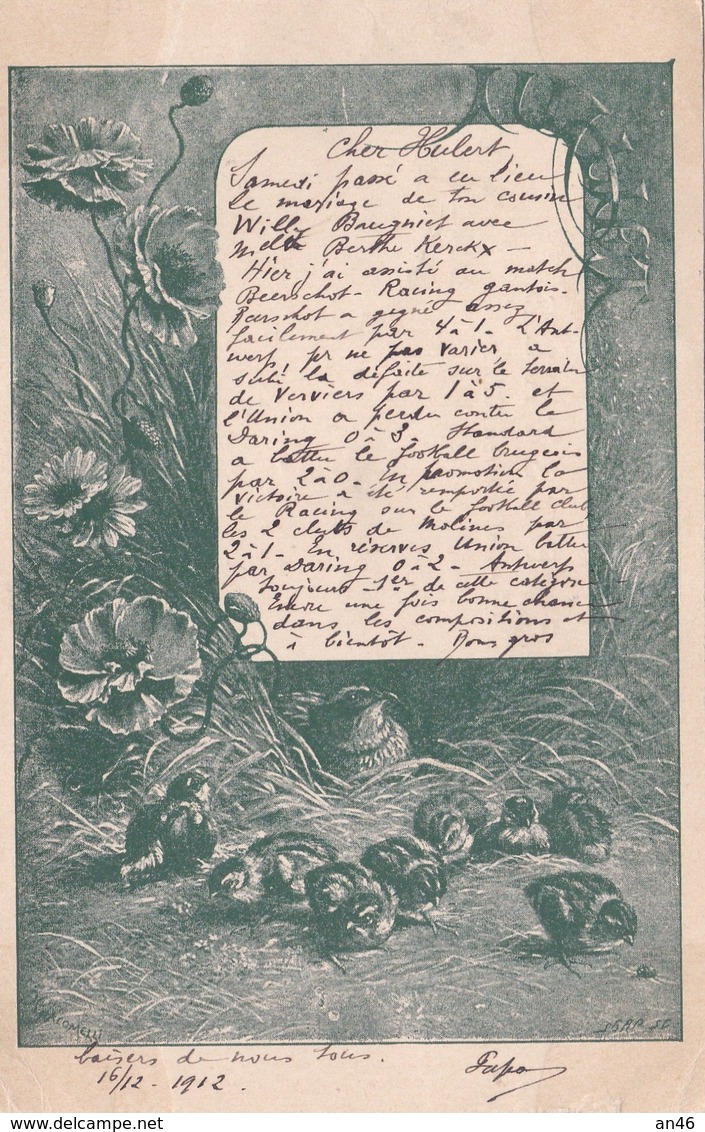 Cher Hubert
Samedi passé a eu lieu
le mariage de ton cousin
Willy Baugniet avec
Melle Berthe Kerckx —
Hier j'ai assisté au match
Beerschot - Racing gantois.
Beerschot a gagné assez
facilement par 4 à 1. L'Ant-
werp pr ne pas varier a
subi la défaite sur le terrain
de Verviers par 1 à 5. et
l'Union a perdu contre le
Daring 0 à 3. Standard
a battu le football brugeois
par 2 à 0. En promotion la
victoire a été remportée par
le Racing sur le football club
les 2 clubs de Malines par
2 à 1. En réserves Union battu
par Daring 0 à 2. Antwerp
toujours 1er de cette catégorie
Encore une fois bonne chance
dans les compositions et
à bientôt. Bons gros
GIACOMELLI
baisers de nous tous.
16/12 - 1912.
Papa
an46